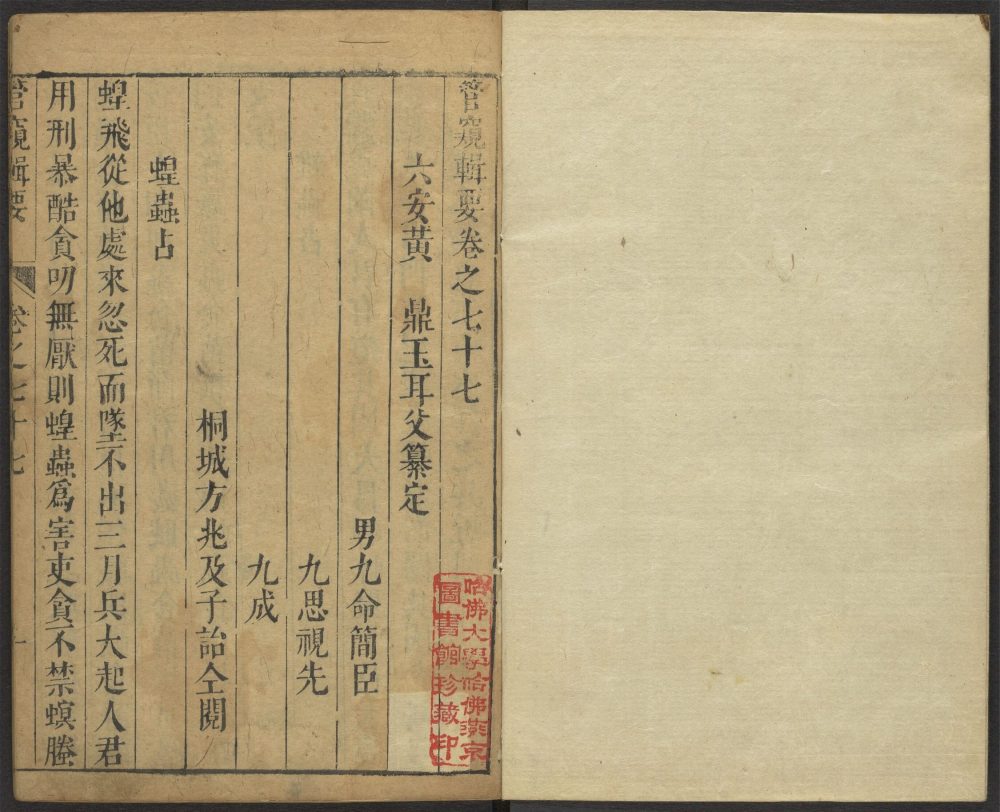 管窺輯要卷之七十七
六安黃 鼎玉耳父纂定
男九命簡臣
九思視先
九成
桐城方兆及子詒仝閱
蝗蟲占
蝗飛從他處來忽死而墜不出三月兵大起人君
用刑暴酷貪叨無厭則蝗蟲爲害吏貪不禁螟螣
管窺輯要 卷之七十七 一
哈佛大學哈佛燕京
圖書館珍藏印